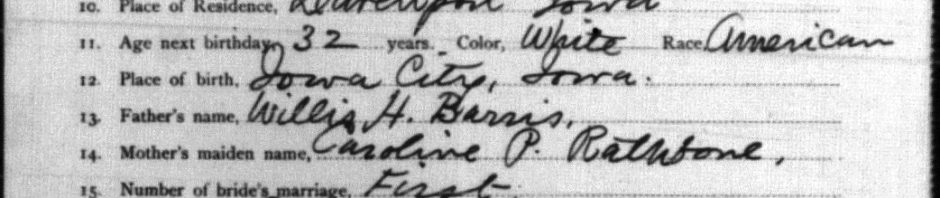 10. Place of Residence, Davenport Iowa
11. Age next birthday, 32 years. Color, White Race, American
12. Place of birth, Iowa City, Iowa.
13. Father's name, Willis H. Barris,
14. Mother's maiden name, Caroline P. Rathbone,
15. Number of bride's marriage, First